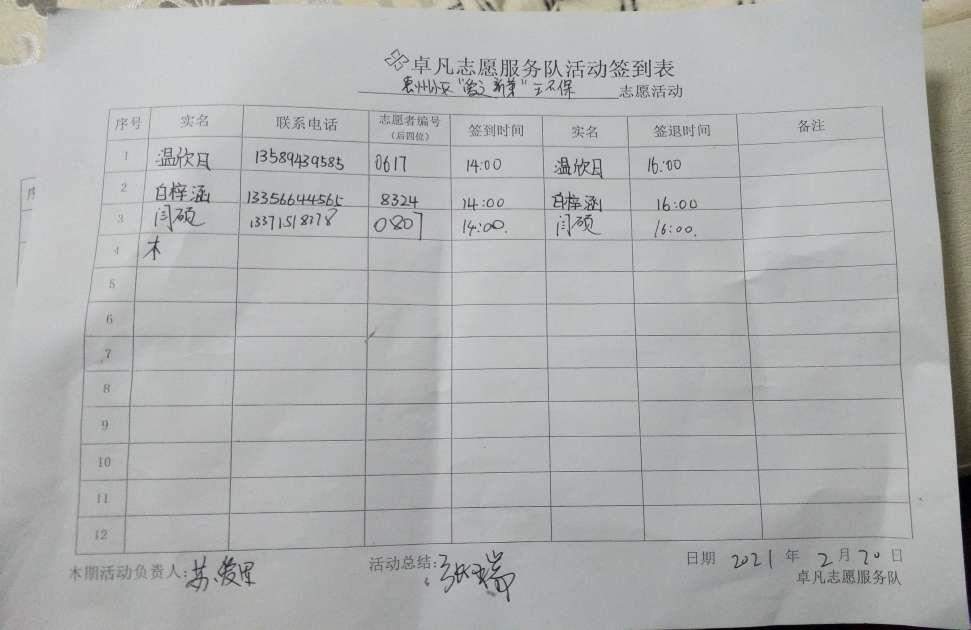 卓凡志愿服务队活动签到表
志愿活动
序号 实名 联系电话 志愿者编号（后四位） 签到时间 实名 签退时间 备注
1 温欣月 13589439585 0617 14:00 温欣月 16:00
2 白梓涵 13356644565 8324 14:00 白梓涵 16:00
3 闫硕 13371518378 0807 14:00. 闫硕 16:00.
4 木
5
6
7
8
9
10
11
12
本期活动负责人: 苏爱里 活动总结: 张瑞 日期 2021 年 2 月 20 日
卓凡志愿服务队
序